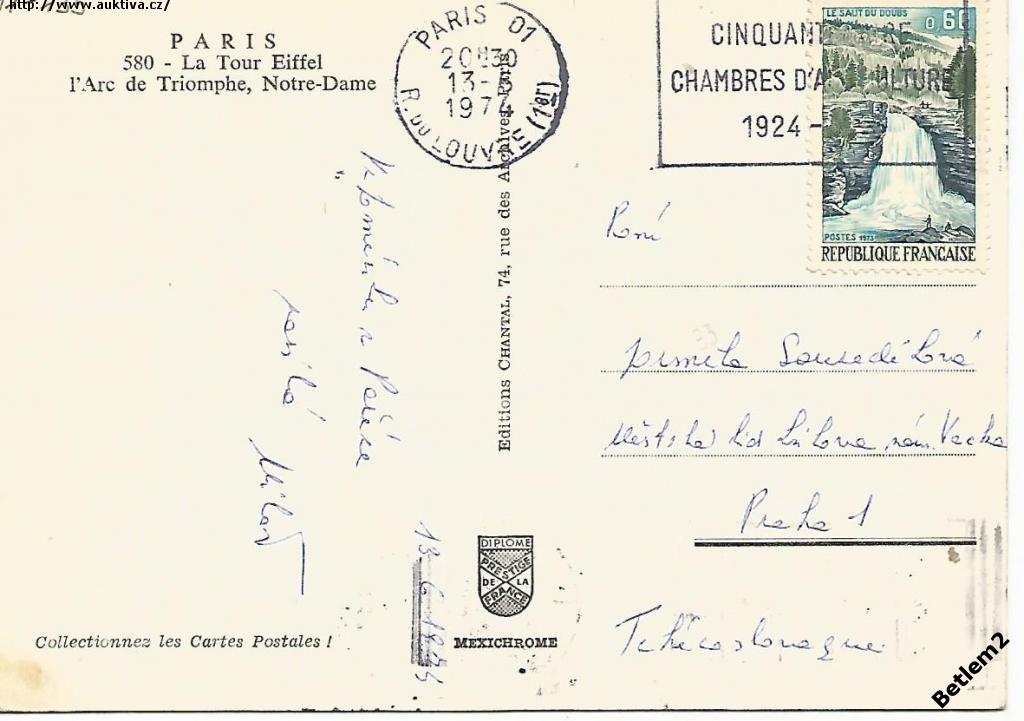 http://www.auktiva.cz/
PARIS
580 - La Tour Eiffel
l'Arc de Triomphe, Notre-Dame
PARIS 01
20H30
13-6
1974
R. DU LOUVRE (1er)
CINQUANT
CHAMBRES D'A ULTURE
1924 -
LE SAUT DU DOUBS
0,60
POSTES 1973
REPUBLIQUE FRANÇAISE
Vzpomínku z Paříže
posílá
Milos
13. 6. 1974
Editions CHANTAL, 74, rue des Archives, Paris
Paní
Sousedíková
Městská lid. knihovna, nám. Vacka
Praha 1
Tchécoslovaquie
DIPLOME
PRESTIGE
DE LA
FRANCE
MEXICHROME
Collectionnez les Cartes Postales !
Betlem2